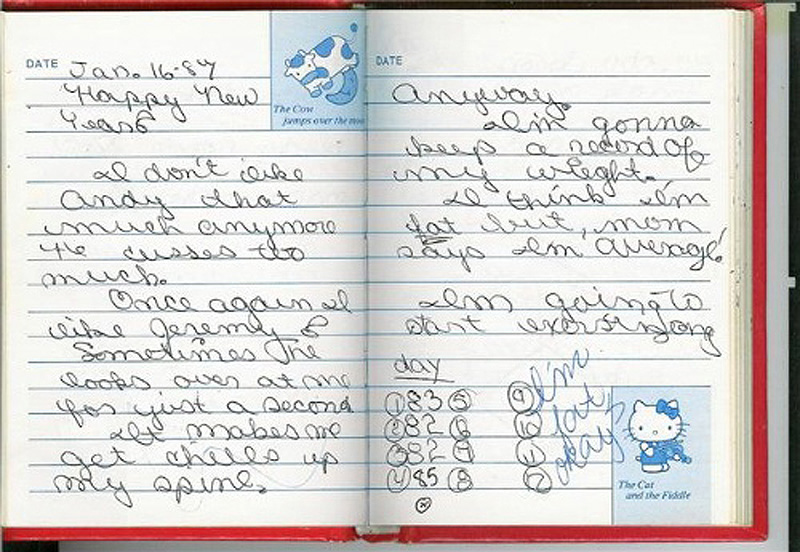 DATE Jan. 16-87
Happy New
Years
The Cow
jumps over the moo
I don't like
Andy that
much anymore
He cusses too
much.
Once again I
like Jeremy &
Sometimes he
looks over at me
for just a second
It makes me
get chills up
my spine.
DATE
Anyway.
I'm gonna
keep a record of
my wieght.
I think I'm
fat but, mom
says I'm average!
I'm going to
start exersizing
day
① 83 ⑤ ⑨
② 82 ⑥ ⑩
③ 82 ⑦ ⑪
④ 85 ⑧ ⑫
I'm
fat,
okay?
The Cat
and the Fiddle